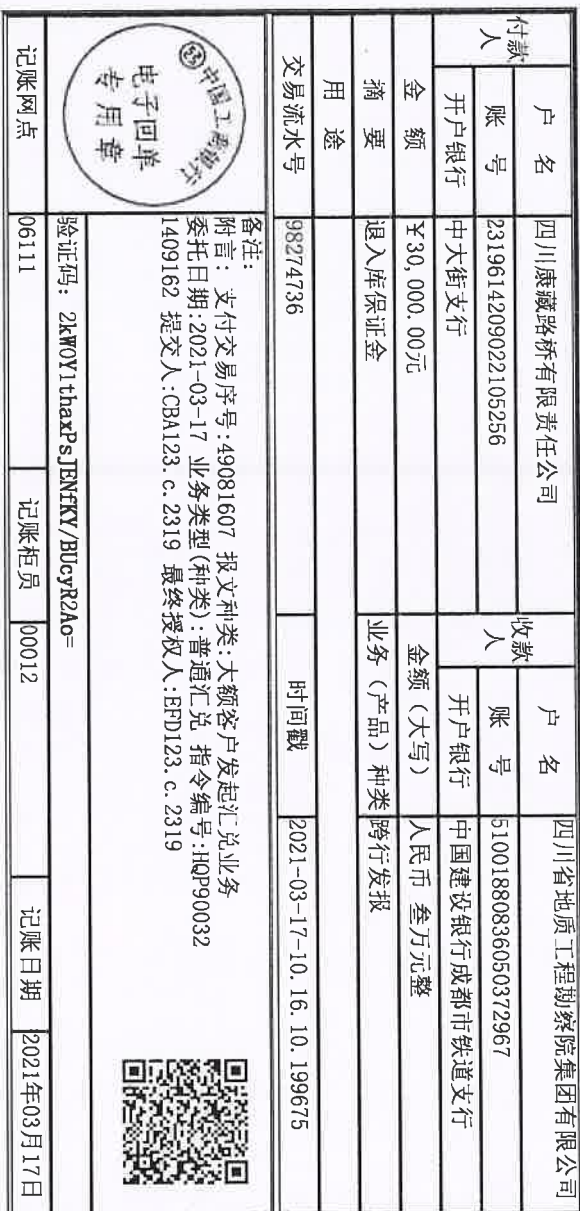 付款人 户 名 四川康藏路桥有限责任公司 收款人 户 名 四川省地质工程勘察院集团有限公司
账 号 2319614209022105256 账 号 51001880836050372967
开户银行 中大街支行 开户银行 中国建设银行成都市铁道支行
金 额 ¥30,000.00元 金额（大写） 人民币 叁万元整
摘 要 退入库保证金 业务（产品）种类 跨行发报
用 途
交易流水号 98274736 时间戳 2021-03-17-10.16.10.199675
中国工商银行
电子回单
专用章
备注：
附言： 支付交易序号:49081607 报文种类:大额客户发起汇兑业务
委托日期:2021-03-17 业务类型(种类):普通汇兑 指令编号:HQP90032
1409162 提交人:CBA123.c.2319 最终授权人:EFD123.c.2319
验证码: 2kW0Y1thaxPsJENfKY/BUcyR2Ao=
记账网点 06111 记账柜员 00012 记账日期 2021年03月17日